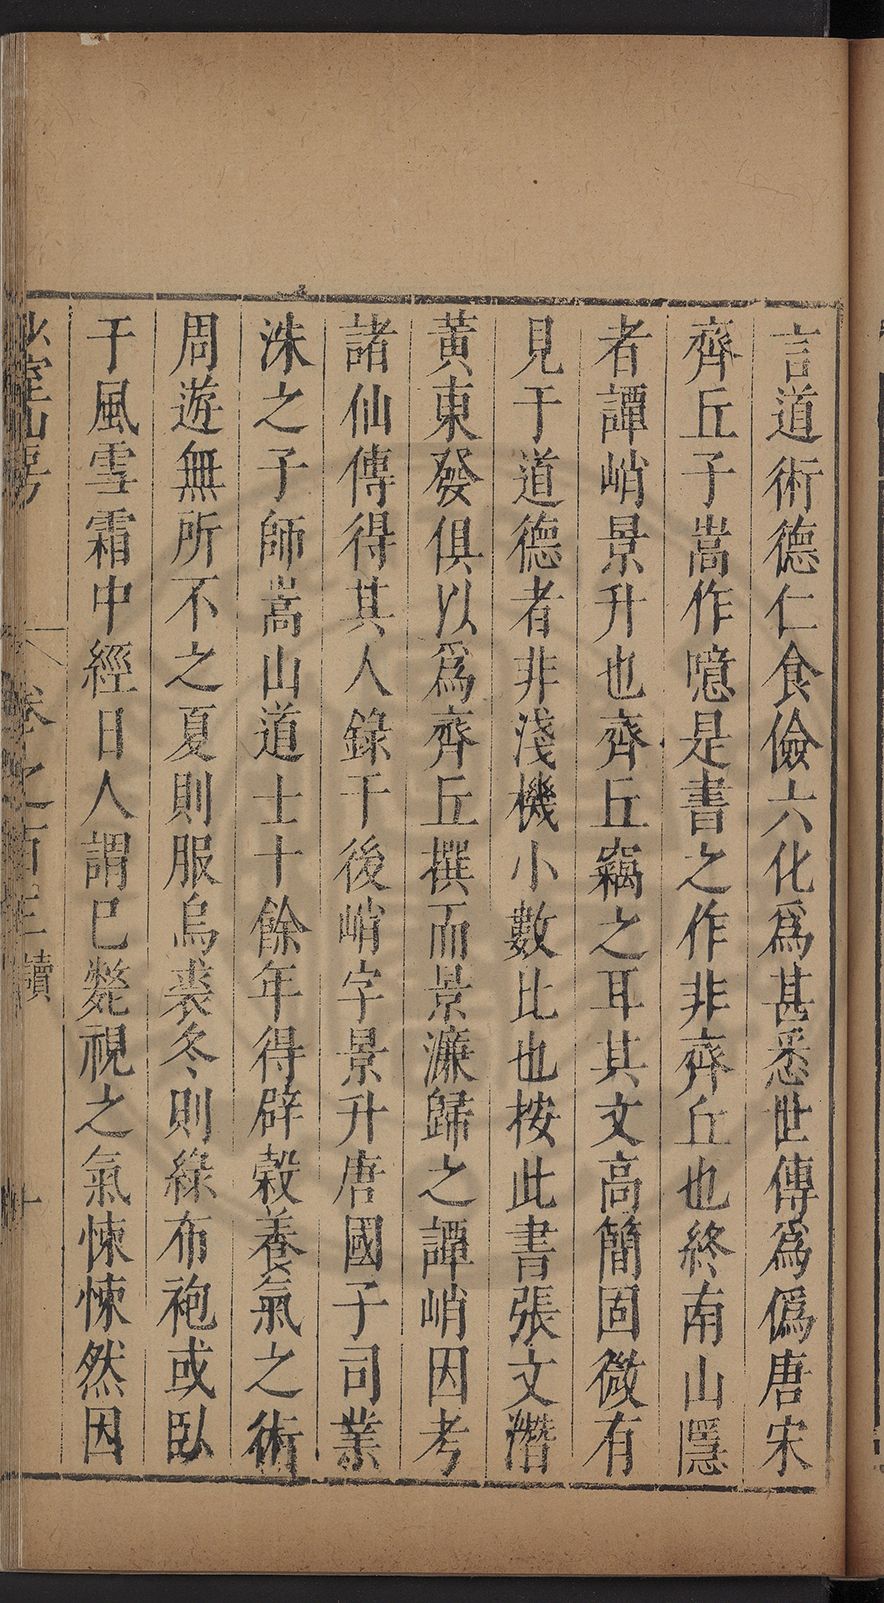 言道術德仁食儉六化爲甚悉世傳爲僞唐宋
齊丘子嵩作噫是書之作非齊丘也終南山隱
者譚峭景升也齊丘竊之耳其文高簡固微有
見于道德者非淺機小數比也按此書張文潛
黃東發俱以爲齊丘撰而景濂歸之譚峭因考
諸仙傳得其人錄于後峭字景升唐國子司業
洙之子師嵩山道士十餘年得辟穀養氣之術
周遊無所不之夏則服烏裘冬則綠布袍或臥
于風雪霜中經日人謂已斃視之氣悚悚然因
山房 卷之百三 讀 十